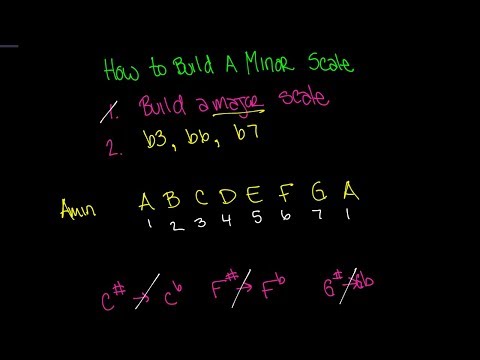 How to Build A Minor Scale
1. Build a major scale
2. b3, b6, b7
Amin A B C D E F G A
1 2 3 4 5 6 7 1
C# → Cb F# → Fb G# → Gb